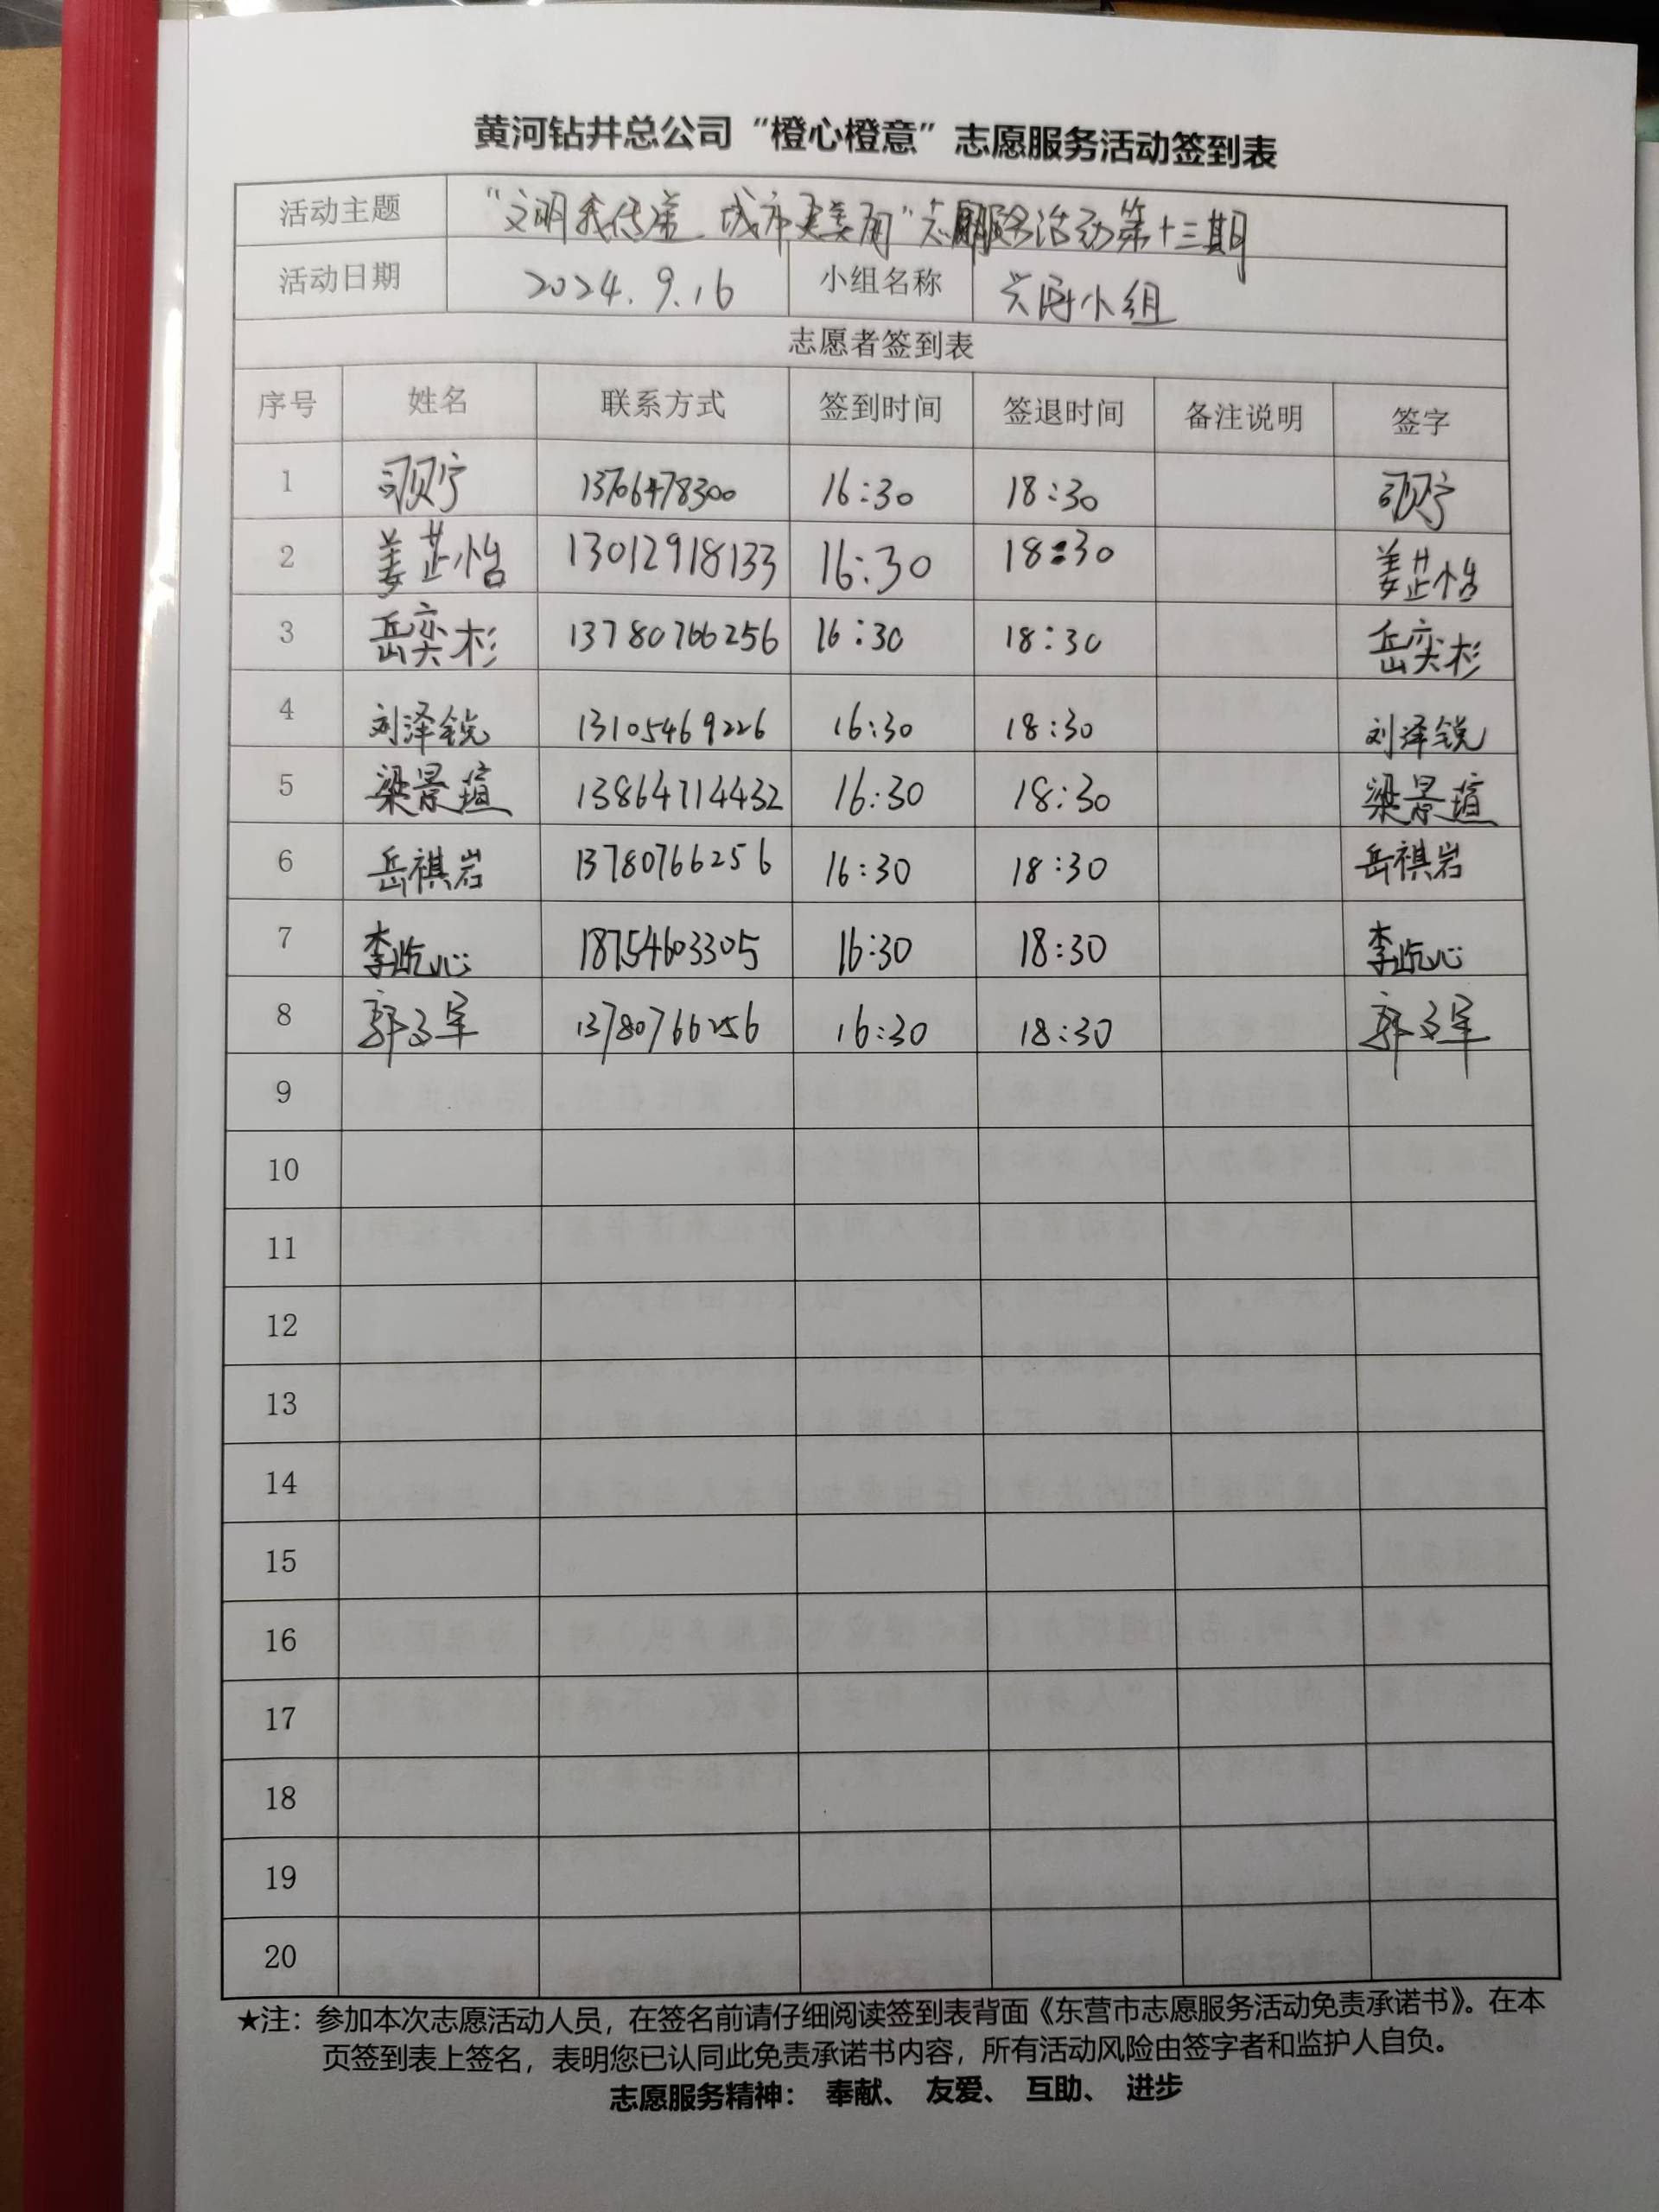 黄河钻井总公司“橙心橙意”志愿服务活动签到表
活动主题 “文明我传递 城市更美丽”志愿服务活动第十三期
活动日期 2024.9.16 小组名称 小组
志愿者签到表
序号 姓名 联系方式 签到时间 签退时间 备注说明 签字
1 13706478300 16:30 18:30
2 姜芷怡 13012918133 16:30 18:30 姜芷怡
3 岳奕杉 13780766256 16:30 18:30 岳奕杉
4 刘泽锐 13105469226 16:30 18:30 刘泽锐
5 梁景瑄 13864714432 16:30 18:30 梁景瑄
6 岳祺岩 13780766256 16:30 18:30 岳祺岩
7 李屹心 18754603305 16:30 18:30 李屹心
8 郭子军 13780766256 16:30 18:30 郭子军
9
10
11
12
13
14
15
16
17
18
19
20
★注：参加本次志愿活动人员，在签名前请仔细阅读签到表背面《东营市志愿服务活动免责承诺书》。在本
页签到表上签名，表明您已认同此免责承诺书内容，所有活动风险由签字者和监护人自负。
志愿服务精神： 奉献、 友爱、 互助、 进步